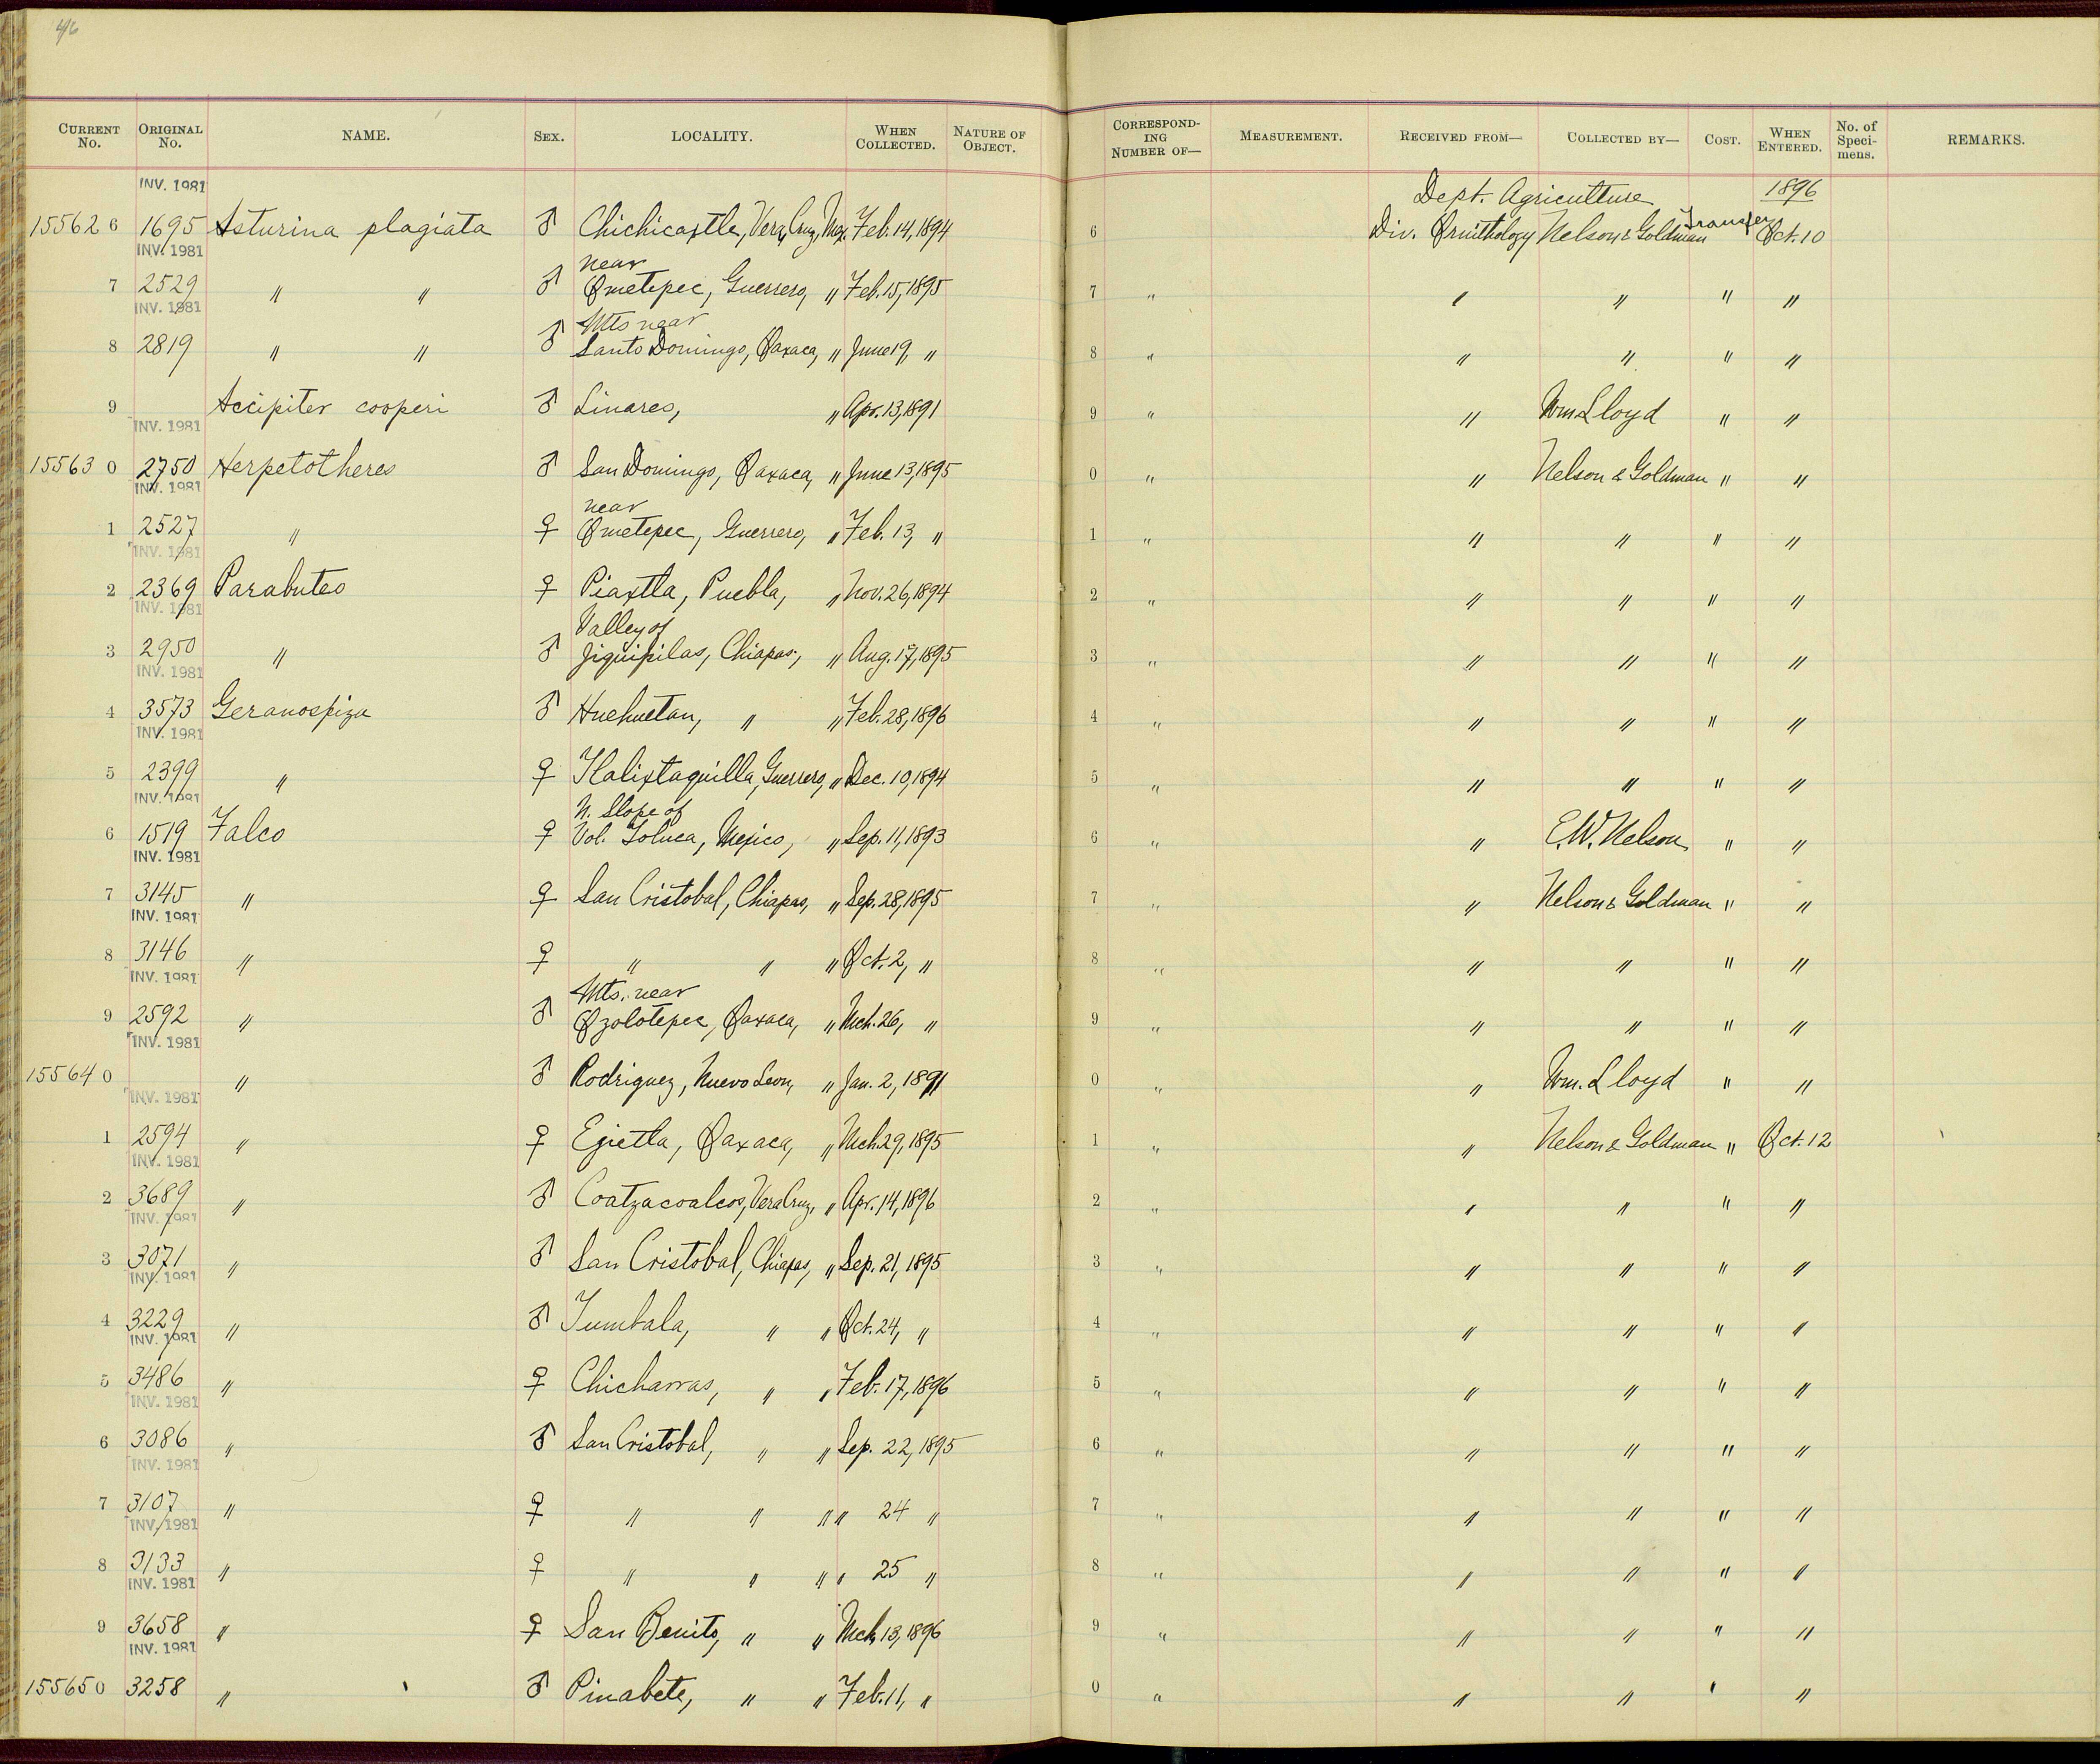 46
CURRENT No. ORIGINAL No. NAME. SEX. LOCALITY. WHEN COLLECTED. NATURE OF OBJECT. CORRESPONDING NUMBER OF— MEASUREMENT. RECEIVED FROM— COLLECTED BY— COST. WHEN ENTERED. No. of Specimens. REMARKS.
INV. 1981 Dept. Agriculture 1896
155626 1695 Asturina plagiata ♂ Chichicaxtle, Vera Cruz, Mex. Feb. 14, 1894 6 Div. Ornithology Nelson & Goldman Transfer Oct. 10
INV. 1981 near
7 2529 " " ♂ Ometepec, Guerrero, " Feb. 15, 1895 7 " " " " "
INV. 1981 Mts near
8 2819 " " ♂ Santo Domingo, Oaxaca, " June 19, " 8 " " " " "
9 Accipiter cooperi ♂ Linares, " Apr. 13, 1891 9 " " Wm Lloyd " "
INV. 1981
155630 2750 Herpetotheres ♂ San Domingo, Oaxaca, " June 13, 1895 0 " " Nelson & Goldman " "
INV. 1981 near
1 2527 " ♀ Ometepec, Guerrero, " Feb. 13, " 1 " " " " "
INV. 1981
2 2369 Parabuteo ♀ Piaxtla, Puebla, " Nov. 26, 1894 2 " " " " "
INV. 1981 Valley of
3 2950 " ♂ Jiquipilas, Chiapas, " Aug. 17, 1895 3 " " " " "
INV. 1981
4 3573 Geranospiza ♂ Huehuetan, " " Feb. 28, 1896 4 " " " " "
INV. 1981
5 2399 " ♀ Tlalixtaquilla, Guerrero, " Dec. 10, 1894 5 " " " " "
INV. 1981 N. Slope of
6 1519 Falco ♀ Vol. Toluca, Mexico, " Sep. 11, 1893 6 " " E. W. Nelson " "
INV. 1981
7 3145 " ♀ San Cristobal, Chiapas, " Sep. 28, 1895 7 " " Nelson & Goldman " "
INV. 1981
8 3146 " ♀ " " " Oct. 2, " 8 " " " " "
INV. 1981 Mts. near
9 2592 " ♂ Ozolotepec, Oaxaca, " Mch. 26, " 9 " " " " "
INV. 1981
155640 " ♂ Rodriguez, Nuevo Leon, " Jan. 2, 1891 0 " " Wm. Lloyd " "
INV. 1981
1 2594 " ♀ Ejietla, Oaxaca, " Mch. 29, 1895 1 " " Nelson & Goldman " Oct. 12
INV. 1981
2 3689 " ♂ Coatzacoalcos, Vera Cruz, " Apr. 14, 1896 2 " " " " "
INV. 1981
3 3071 " ♂ San Cristobal, Chiapas, " Sep. 21, 1895 3 " " " " "
INV. 1981
4 3229 " ♂ Tumbala, " " Oct. 24, " 4 " " " " "
INV. 1981
5 3486 " ♀ Chicharras, " " Feb. 17, 1896 5 " " " " "
INV. 1981
6 3086 " ♂ San Cristobal, " " Sep. 22, 1895 6 " " " " "
INV. 1981
7 3107 " ♀ " " " " 24 " 7 " " " " "
INV. 1981
8 3133 " ♀ " " " " 25 " 8 " " " " "
INV. 1981
9 3658 " ♀ San Benito, " " Mch. 13, 1896 9 " " " " "
INV. 1981
155650 3258 " ♂ Pinabete, " " Feb. 11, " 0 " " " " "